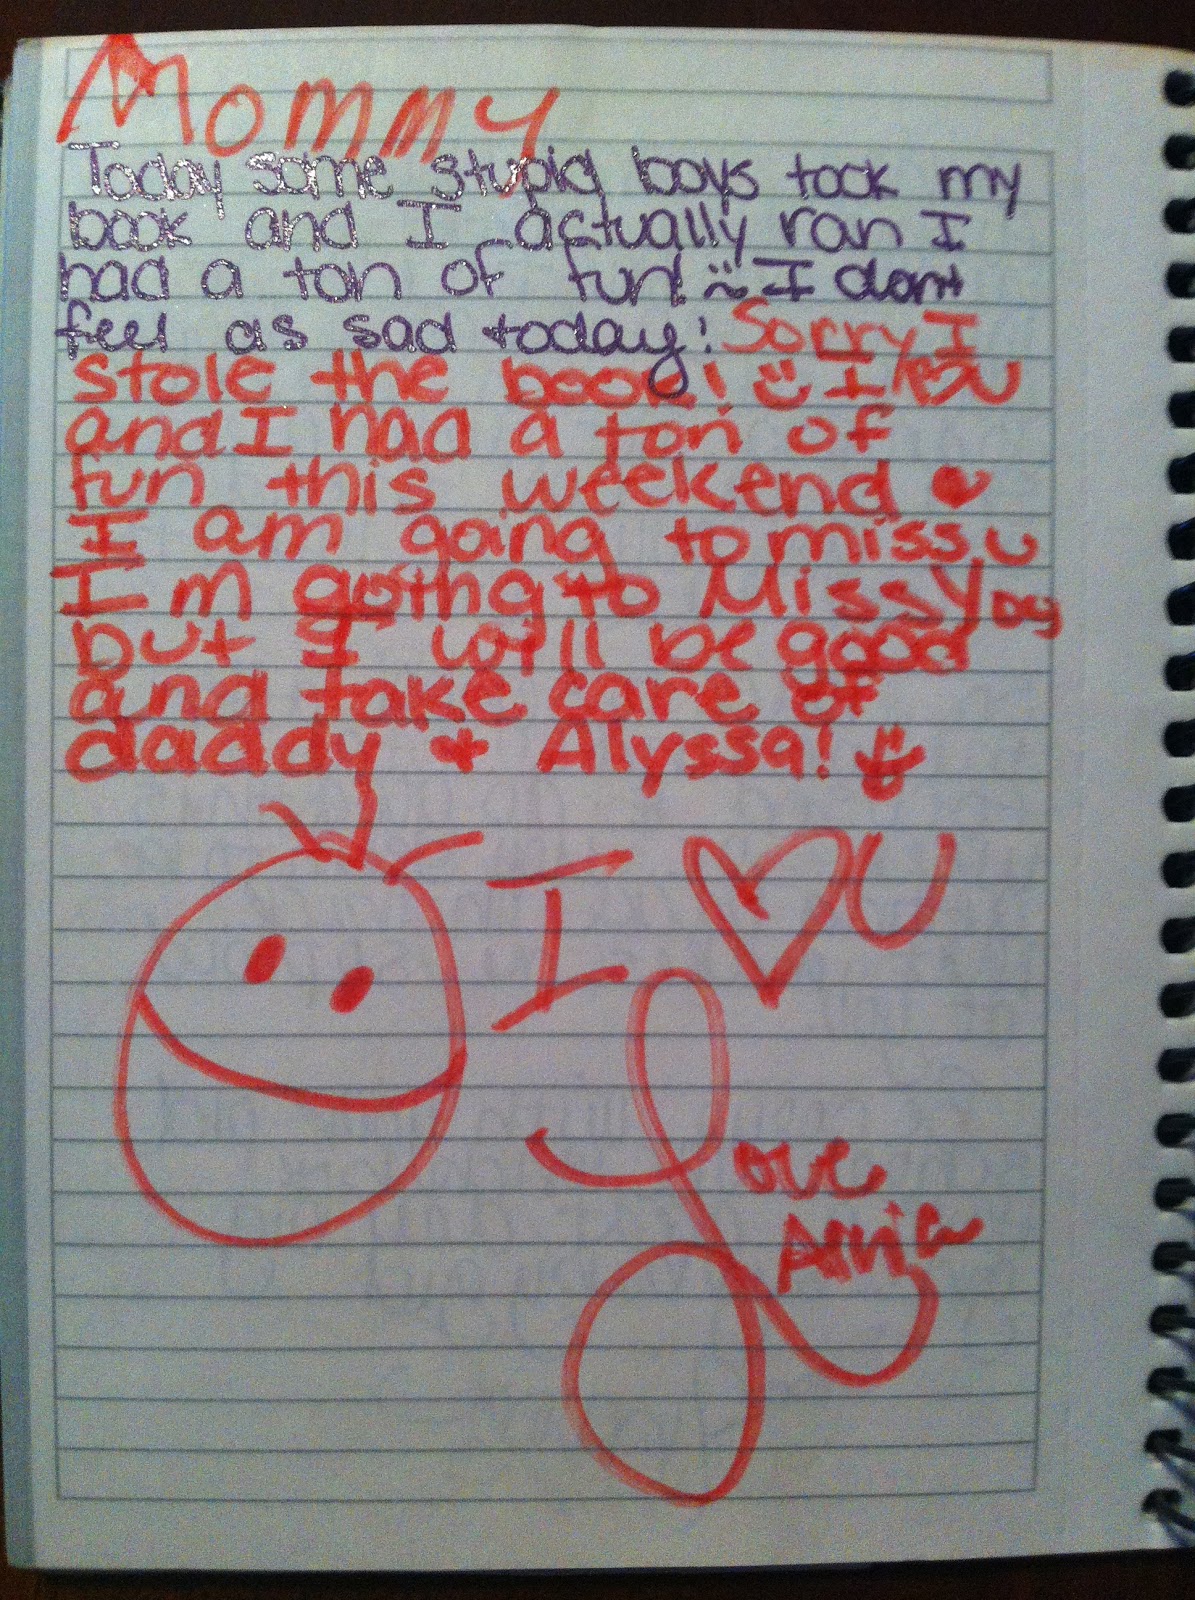 Mommy
Today some stupid boys took my
book and I actually ran I
had a ton of fun! I dont
feel as sad today! Sorry I
stole the book! I ♥ U
and I had a ton of
fun this weekend ♥
I am going to miss u
Im going to Miss You
but I will be good
and take care of
daddy + Alyssa!
I ♥ U
Love